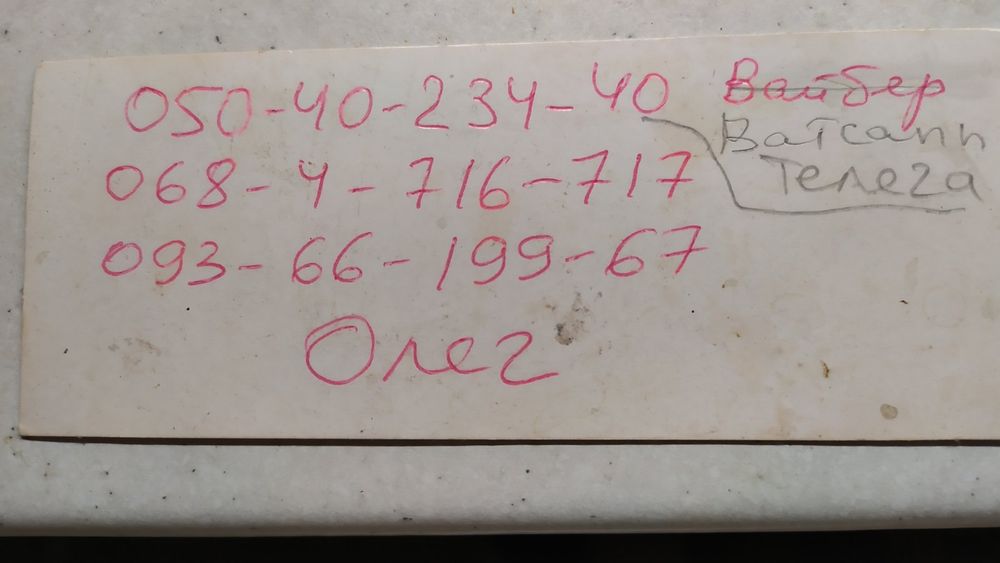 050-40-234-40 Вайбер
Ватсапп
Телега
068-4-716-717
093-66-199-67
Олег